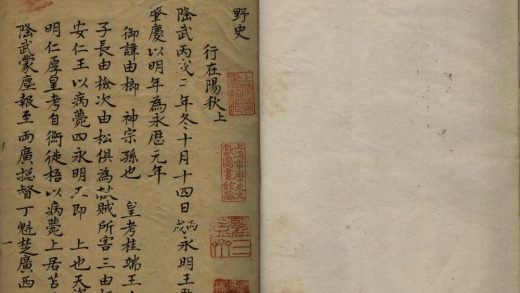 野史
行在陽秋上
隆武丙戌二年冬十月十四日丙戌永明王
肇慶以明年為永歷元年
御諱由榔 神宗孫也 皇考桂端王
子長由檢次由松俱為賊所害三由
安仁王以病薨四永明王即 上也天
明仁厚皇考自衡徒梧以病薨上居苫
隆武蒙塵報至兩廣總督丁魁楚廣西
一
上海市歷史文獻圖書館藏